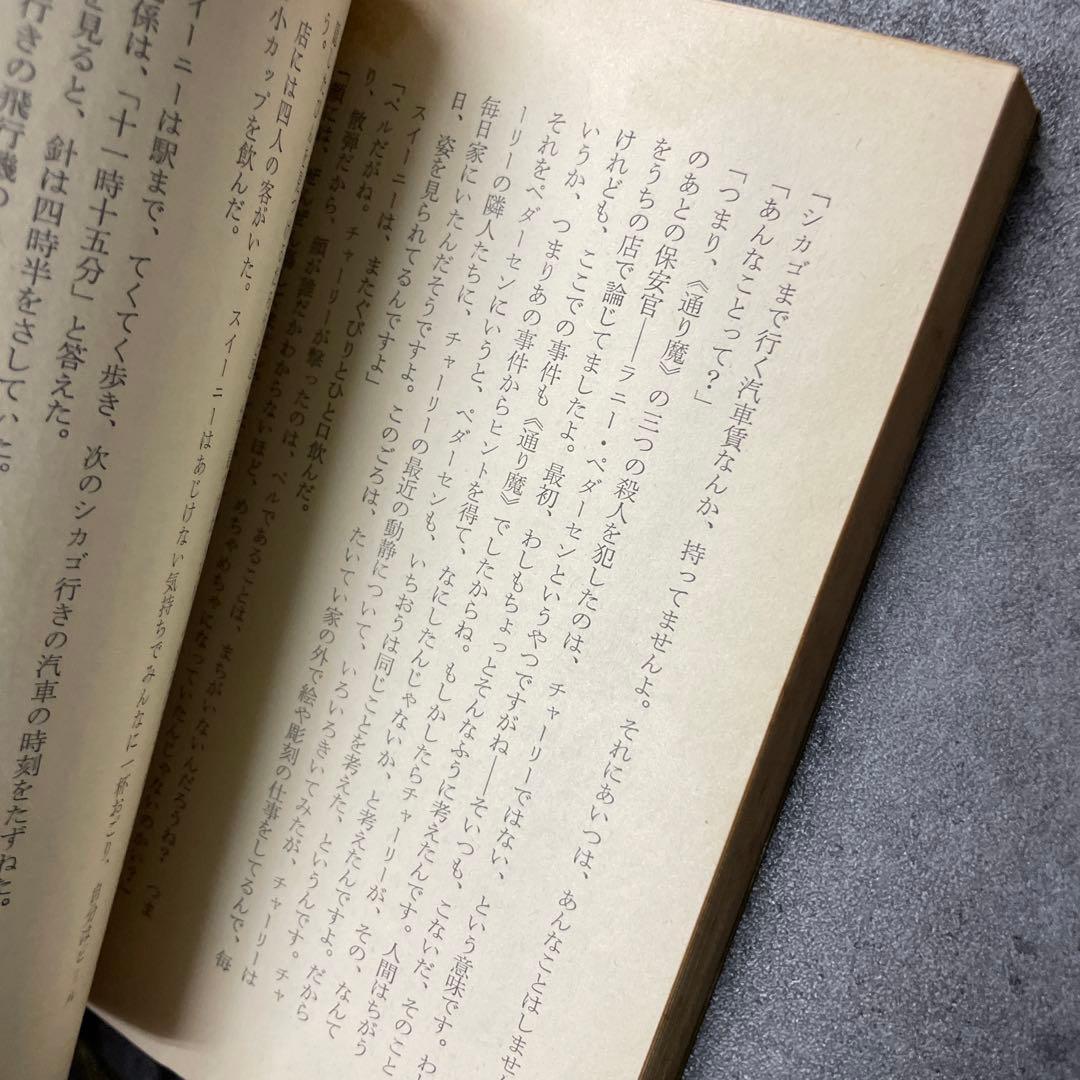 「シカゴまで行く汽車賃なんか、持ってませんよ。それにあいつは、あんなことはしませ
「あんなことって？」
「つまり、《通り魔》の三つの殺人を犯したのは、チャーリーではない、という意味です。わ
のあとの保安官――ラニー・ペダーセンというやつですがね――そいつも、こないだ、そのこと
をうちの店で論じてましたよ。最初、わしもちょっとそんなふうに考えたんです。人間はちがう
けれども、ここでの事件も《通り魔》でしたからね。もしかしたらチャーリーが、その、なんて
いうか、つまりあの事件からヒントを得て、なにしたんじゃないか、と考えたんですよ。だから
それをペダーセンにいうと、ペダーセンも、いちおうは同じことを考えた、というんです。チャ
ーリーの隣人たちに、チャーリーの最近の動静について、いろいろきいてみたが、チャーリーは
毎日家にいたんだそうですよ。このごろは、たいてい家の外で絵や彫刻の仕事をしてるんで、毎
日、姿を見られてるんですよ」
スイーニーは、またぐびりとひと口飲んだ。
「ベルだがね。チャーリーが撃ったのは、ベルであることは、まちがいないんだろうね？　つま
り、散弾だから、顔が誰だかわからないほど、めちゃめちゃになっていたんじゃないのかい？」
「顔には、
店には四人の客がいた。スイーニーはあじけない気持ちでみんなに一杯おごり、
小カップを飲んだ。
イーニーは駅まで、てくてく歩き、次のシカゴ行きの汽車の時刻をたずねた。
係は、「十一時十五分」と答えた。
を見ると、針は四時半をさしていた。
行きの飛行機の